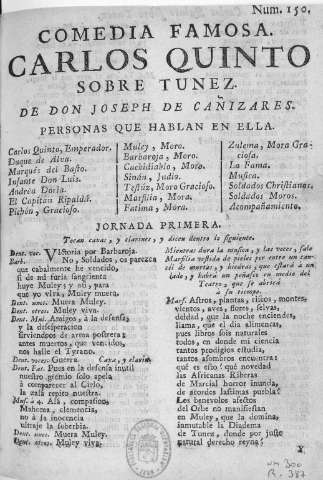 Num. 150.
COMEDIA FAMOSA.
CARLOS QUINTO
SOBRE TUNEZ.
DE DON JOSEPH DE CAÑIZARES.
PERSONAS QUE HABLAN EN ELLA.
Carlos Quinto, Emperador.
Duque de Alva.
Marqués del Basto.
Infante Don Luis.
Andrea Doria.
El Capitán Ripalda.
Pichón, Gracioso.
Muley, Moro.
Barbaroja, Moro.
Cachidiablo, Moro.
Sinán, Judio.
Testúz, Moro Gracioso.
Marsilia, Mora.
Fatima, Mora.
Zulema, Mora Graciosa.
La Fama.
Musica.
Soldados Christianos.
Soldados Moros.
Acompañamiento.
JORNADA PRIMERA.
Tocan caxas, y clarines, y dicen dentro lo siguiente.
Dent. voc. Victoria por Barbaroja.
Barb. No, Soldados, os parezca
que cabalmente he vencido,
si de mi furia sangrienta
huye Muley; y nó, para
que yo viva, Muley muera.
Dent. unos. Muera Muley.
Dent. otros. Muley viva.
Dent. Mul. Amigos, á la defensa,
y la desesperacion
sirviendoos de arena postrera
antes muertos, que vencidos,
nos halle el Tyrano.
Dent. voces. Guerra. Caxa, y clarin.
Dent. Fat. Pues en la defensa inutil
nuestro gremio solo apela
á comparecer al Cielo,
la zafa repito nuestra.
Mus. á 4. Alá, compasion,
Mahoma, clemencia,
no á la inocencia
ultraje la soberbia.
Dent. unos. Muera Muley.
Dent. otros. Muley viva.
Mientras dura la musica, y las voces, sale
Marsilia vestida de pieles por entre un canc&#237;l
de murtas, y hiedras, que estará á un
lado, y habrá un peñasco en medio del
Teatro, que se abrirá
á su tiempo.
Mars. Astros, plantas, riscos, montes,
vientos, aves, flores, selvas,
deidad, que la noche enciendes,
llama, que el dia alimentas,
pues libros sois naturales
todos, en donde mi ciencia
tantos prodigios estudia,
tantos asombros encuentra:
qué es esto? qué novedad
las Africanas Riberas
de Marcial horror inunda,
de acordes lastimas puebla?
Los benevolos afectos
del Orbe no manifiestan
en Muley, que la domina,
inmutable la Diadema
de Tunez, donde por justo
natural derecho reyna?